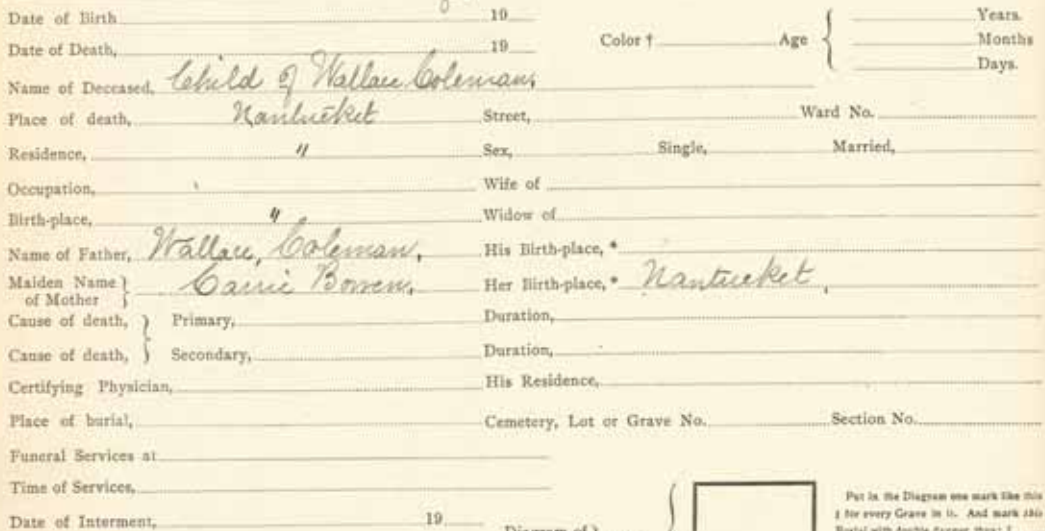 Date of Birth 19
Years.
Date of Death, 19 Color † Age { Months
Days.
Name of Deceased, Child of Wallace Coleman,
Place of death, Nantucket Street, Ward No.
Residence, " Sex, Single, Married,
Occupation, Wife of
Birth-place, " Widow of
Name of Father, Wallace, Coleman, His Birth-place, *
Maiden Name of Mother } Carrie Bowen, Her Birth-place, * Nantucket,
Cause of death, } Primary, Duration,
Cause of death, } Secondary, Duration,
Certifying Physician, His Residence,
Place of burial, Cemetery, Lot or Grave No. Section No.
Funeral Services at
Time of Services,
Put in the Diagram one mark like this
for every Grave in it. And mark this
Date of Interment, 19 Diagram of }